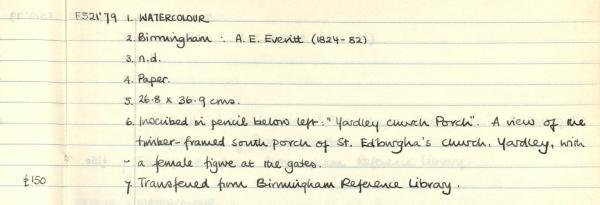 F521'79 1. WATERCOLOUR
2. Birmingham : A. E. Everitt (1824-82)
3. n.d.
4. Paper.
5. 26.8 x 36.9 cms.
6. Inscribed in pencil below left: "Yardley church Porch". A view of the
timber-framed south porch of St. Edburgha's church, Yardley, with
a female figure at the gates.
£150 7. Transferred from Birmingham Reference Library.